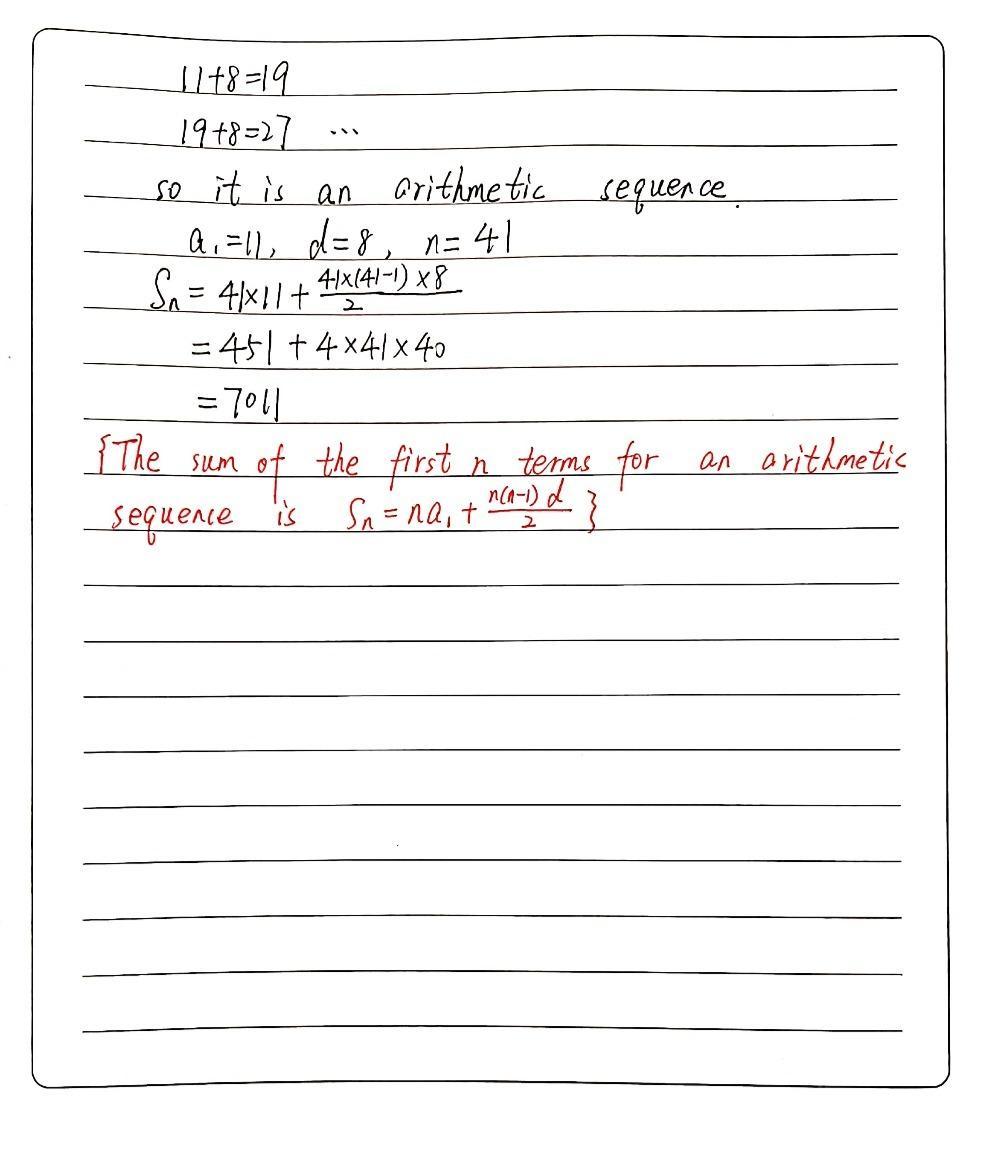 11+8=19
19+8=27 ...
so it is an arithmetic sequence.
a₁=11, d=8, n=41
Sₙ = 41×11 + 41×(41-1)×8/2
= 451 + 4×41×40
= 7011
{The sum of the first n terms for an arithmetic
sequence is Sₙ = na₁ + n(n-1)d/2 }